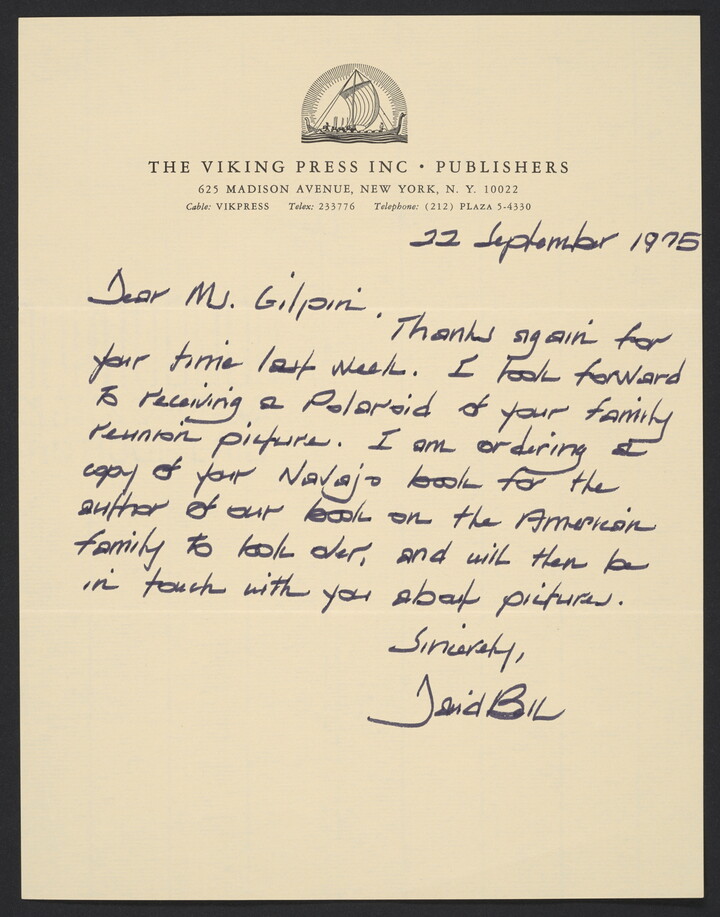 THE VIKING PRESS INC · PUBLISHERS
625 MADISON AVENUE, NEW YORK, N. Y. 10022
Cable: VIKPRESS Telex: 233776 Telephone: (212) PLAZA 5-4330
22 September 1975
Dear Ms. Gilpin,
Thanks again for
your time last week. I look forward
to receiving a Polaroid of your family
reunion picture. I am ordering a
copy of your Navajo book for the
author of our book on the American
family to look over, and will then be
in touch with you about pictures.
Sincerely,
David Bell